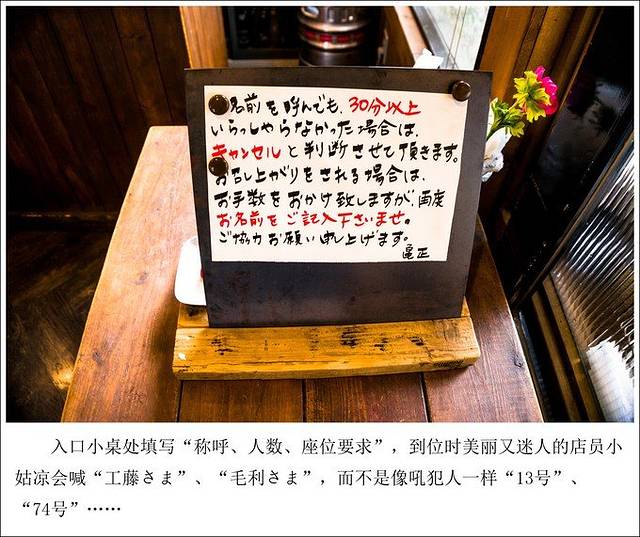 お名前を呼んでも、30分以上
いらっしゃらなかった場合は、
キャンセルと判断させて頂きます。
お召し上がりをされる場合は、
お手数をおかけ致しますが、再度
お名前をご記入下さいませ。
ご協力お願い申し上げます。
亀正
入口小桌处填写“称呼、人数、座位要求”，到位时美丽又迷人的店员小
姑凉会喊“工藤さま”、“毛利さま”，而不是像吼犯人一样“13号”、
“74号”……